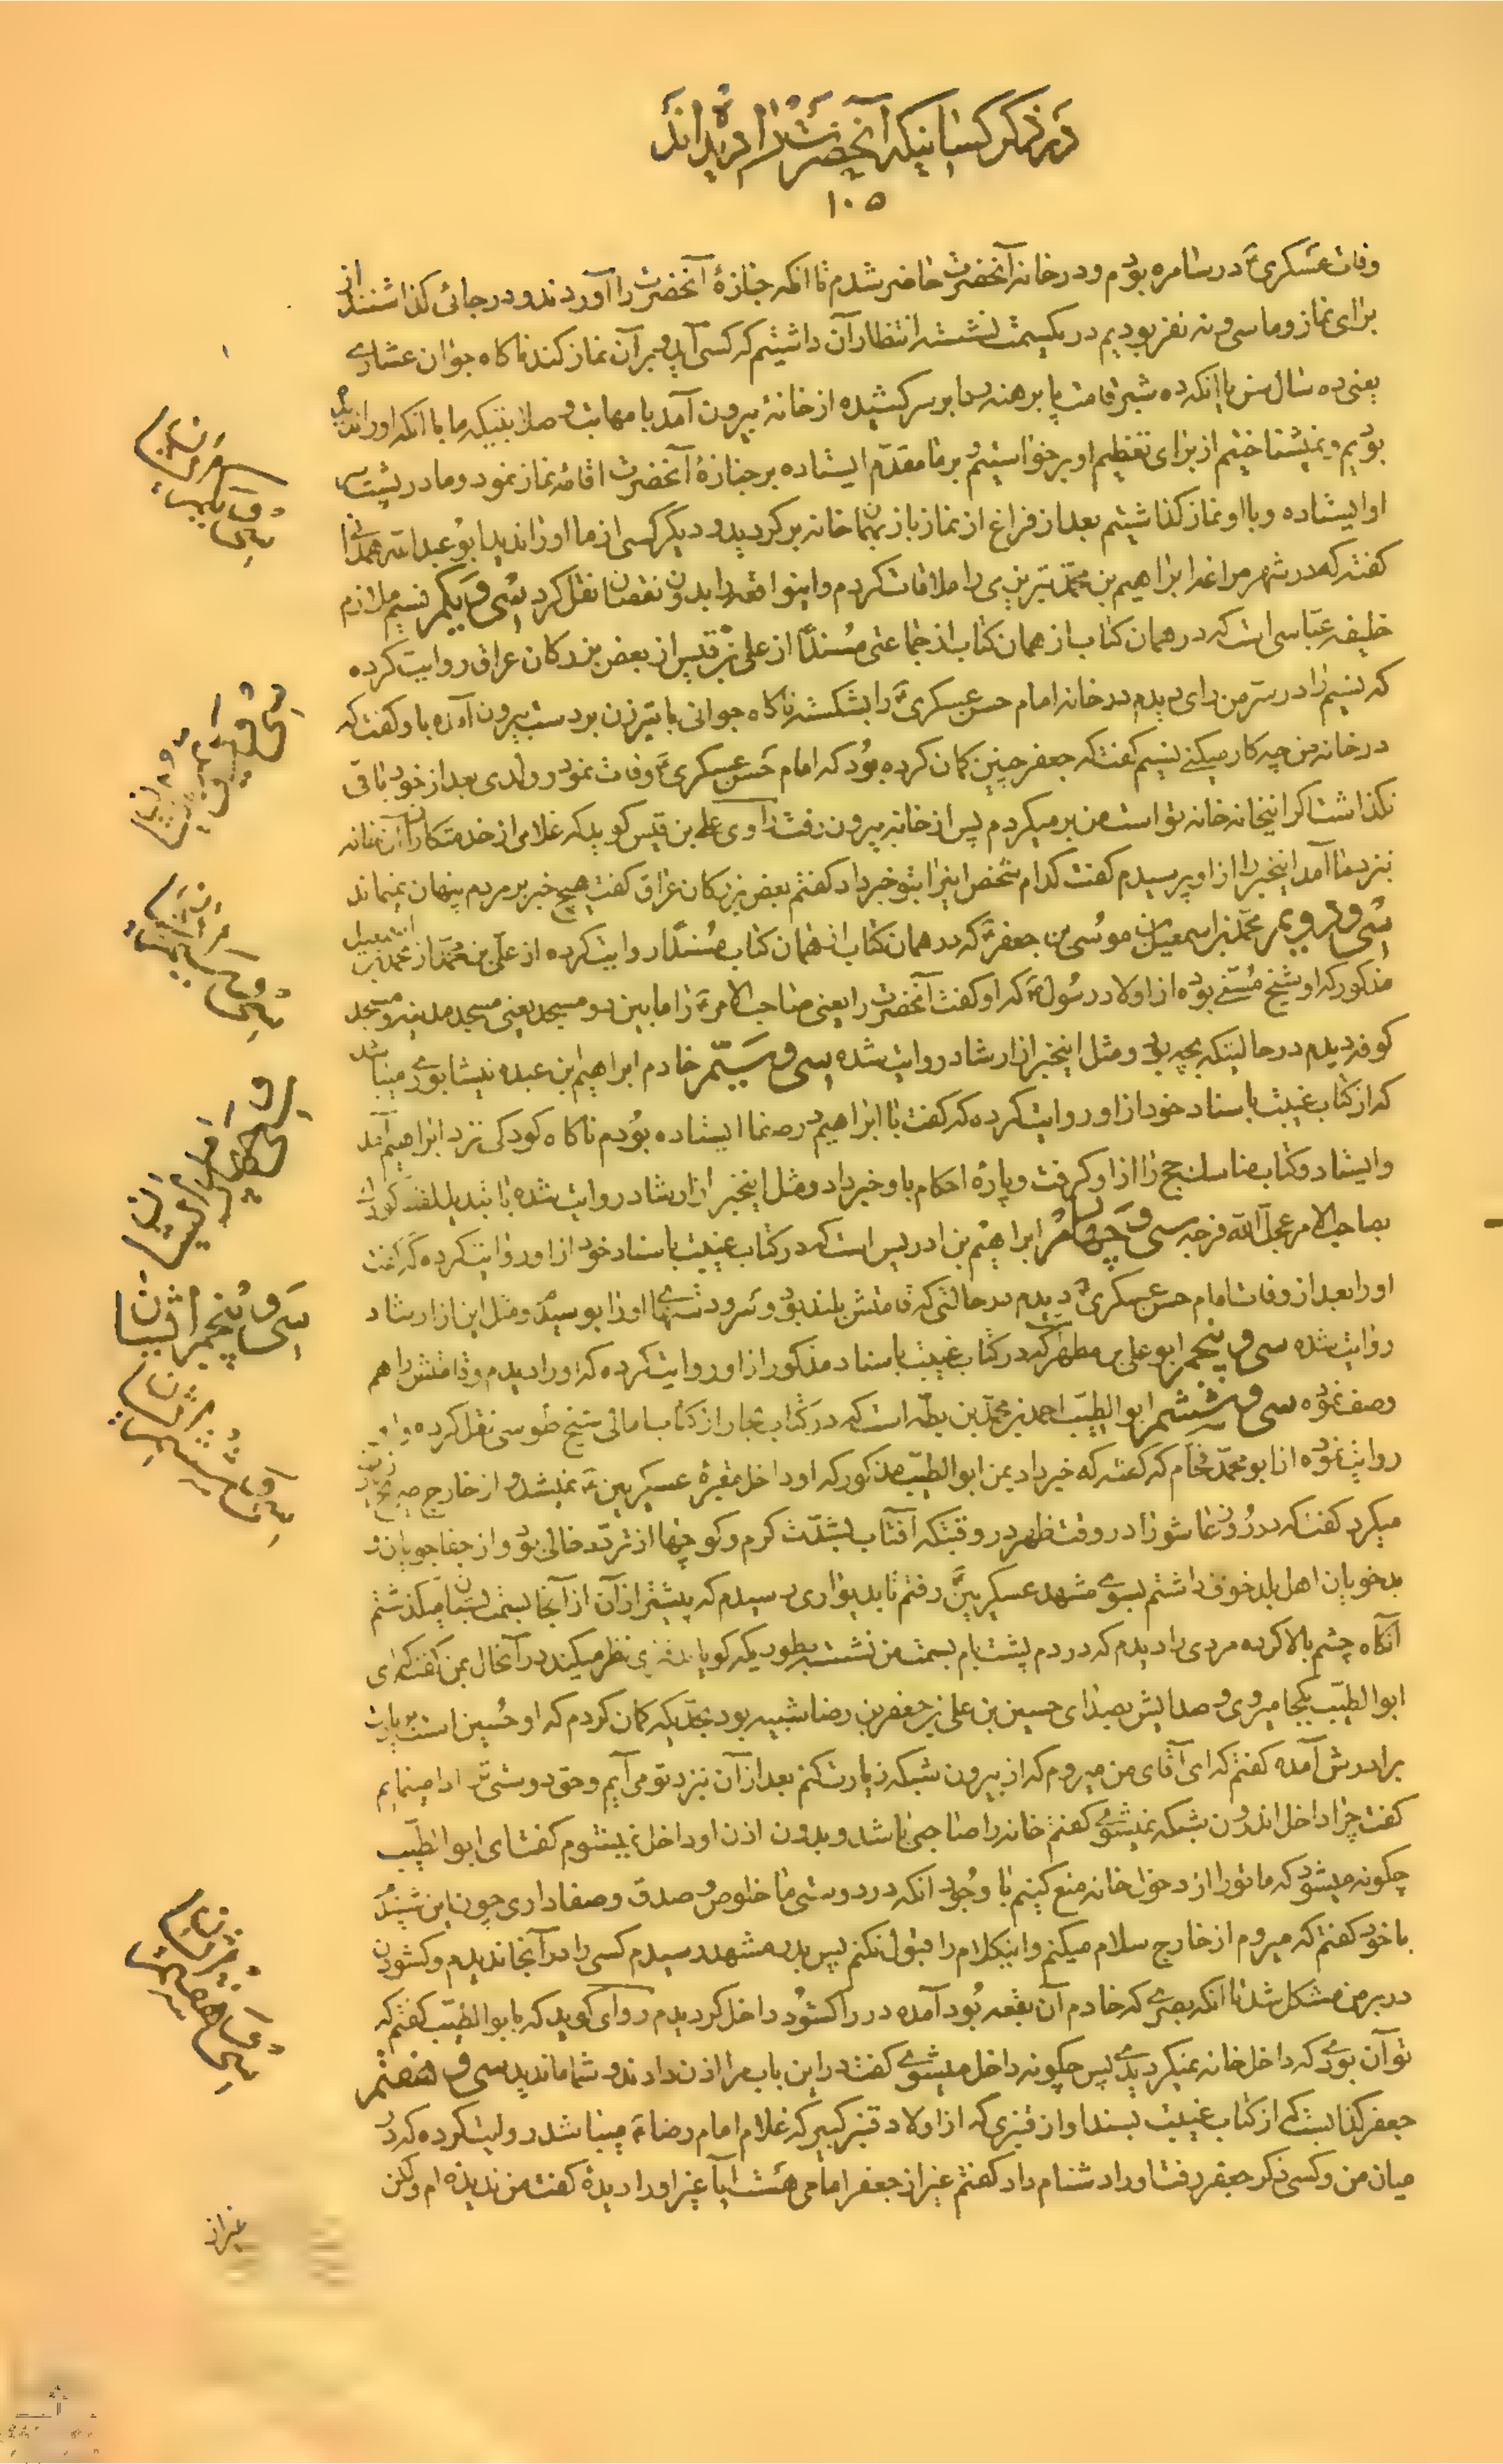 در ذکر کسانیکه آنحضرت را دیده اند
۱۰۵
وفات عسکری ع در سامره بودم و در خانه آنحضرت حاضر شدم تا آنکه جنازۀ آنحضرت را آوردند و در جائی گذاشتند از
برای نماز و ما سی و نه نفر بودیم در یکسمت نشسته انتظار آن داشتیم که کسی آید و بر آن نماز کند ناگاه جوان عشاری
یعنی ده سال سن با آنکه ده شبر قامت پا برهنه ردا بر سر کشیده از خانه بیرون آمد با مهابت و صلابتیکه ما با آنکه او را ندیده
بودیم و نمیشناختیم از برای تعظیم او برخواستیم بر ما مقدم ایستاده بر جنازۀ آنحضرت اقامۀ نماز نمود و ما در پشت سر
او ایستاده و با او نماز گذاشتیم بعد از فراغ از نماز باز بهمان خانه برگردید و دیگر کسی از ما او را ندید ابو عبدالله همدانی
گفته که در شهر مراغه ابراهیم بن محمد تبریزی را ملاقات کردم و اینواقعه را بدون نقصان نقل کرد سی و یکم نسیم ملازم
خلیفه عباسی است که در همان کتاب از همان کتاب از جماعتی مسنداً از علی بن قیس از بعض بزرگان عراق روایت کرده
که نسیم را در سر من رای دیدم در خانه امام حسن عسکری ع را بشکست ناگاه جوانی با تبرزین بر دست بیرون آمده باو گفت که
در خانه من چه کار میکنی نسیم گفت که جعفر چنین گمان کرده بود که امام حسن عسکری ع وفات نمود و ولدی بعد از خود باقی
نگذاشت اگر اینخانه خانه تو است من بر میگردم پس از خانه بیرون رفت راوی علی بن قیس گوید که غلامی از خدمتکاران آن خانه
نزد ما آمد اینخبر را از او پرسیدم گفت کدام شخص اینرا بتو خبر داد گفتم بعض بزرگان عراق گفت هیچ خبر بر مردم پنهان نمیماند
سی و دویم محمد بن اسمعیل بن موسی بن جعفر ع که در همان کتاب از همان کتاب مسنداً روایت کرده از علی بن محمد از محمد بن اسمعیل
مذکور که او شیخ مسنی بوده از اولاد رسول ص که او گفت آنحضرت را یعنی صاحب الامر ع را مابین دو مسجد یعنی مسجد مدینه و مسجد
کوفه دیدم در حالتیکه بچه بود و مثل اینخبر از ارشاد روایت شده سی و سیم خادم ابراهیم بن عبده نیشابوری میباشد
که از کتاب غیبت باسناد خود از او روایت کرده که گفت با ابراهیم در صفا ایستاده بودم ناگاه کودکی نزد ابراهیم آمد
و ایستاد و کتاب مناسک حج را از او گرفت و پارۀ احکام باو خبر داد و مثل اینخبر از ارشاد روایت شده با تبدیل لفظ کودک
بصاحب الامر عجل الله فرجه سی و چهارم ابراهیم بن ادریس است که در کتاب غیبت باسناد خود از او روایت کرده که گفت
او را بعد از وفات امام حسن عسکری ع دیدم در حالتی که قامتش بلند بود و سر و دستهای او را بوسیدم و مثل این از ارشاد
روایت شده سی و پنجم ابو علی بن مطهر که در کتاب غیبت باسناد مذکور از او روایت کرده که او را دیدم و قامتش را هم
وصف نموده سی و ششم ابو الطیب احمد بن محمد بن بطه است که در کتاب بحار از کتاب امالی شیخ طوسی نقل کرده و او
روایت نموده از ابو محمد فحام که گفته که خبر داد بمن ابو الطیب مذکور که او داخل مقبرۀ عسکریین ع نمیشد و از خارج ضریح زیارت
میکرد گفت که در روز عاشورا در وقت ظهر در وقتیکه آفتاب بشدت گرم و کوچها از تردد خالی بود و از جفاجویان و
بدخویان اهل بلد خوف داشتم بسوی مشهد عسکریین ع رفتم تا بدیواری رسیدم که پیشتر از آن از آنجا بسمت بستان میگذشتم
آنگاه چشم بالا کرده مردی را دیدم که در دم پشت بام بسمت من نشسته بطوریکه گویا نظر میکند در آنحال بمن گفت که ای
ابو الطیب بکجا میروی و صدایش بصدای حسین بن علی بن جعفر بن رضا شبیه بود بحدیکه گمان کردم که او حسین است بزیارت
برادرش آمده گفتم که ای آقای من میروم که از بیرون شبکه زیارت کنم بعد از آن نزد تو می آیم و حق دوستی ادا مینمایم
گفت چرا داخل اندرون شبکه نمیشوی گفتم خانه را صاحبی باشد و بدون اذن او داخل نمیشوم گفت ای ابو الطیب
چگونه میشود که ما تو را از دخول خانه منع کنیم با وجود آنکه در دوستی ما خلوص و صدق و صفا داری چون این شنیدم
با خود گفتم که میروم از خارج سلام میکنم و اینکلام را قبول نکنم پس بدر مشهد رسیدم کسی را در آنجا ندیدم و گشودن
در بر من مشکل شد تا آنکه بصری که خادم آن بقعه بود آمده در را گشود داخل گردیدم راوی گوید که بابو الطیب گفتم که
تو آن بودی که داخل خانه نمیگردیدی پس چگونه داخل میشوی گفت در این باب مرا اذن دادند و شما ماندید سی و هفتم
جعفر کذابست که از کتاب غیبت بسند او از قنبری که از اولاد قنبر کبیر که غلام امام رضا ع میباشد روایت کرده که در
میان من و کسی ذکر جعفر رفت او را دشنام داد گفتم غیر از جعفر امامی هست آیا غیر او را دیدۀ گفت من ندیده ام ولکن
غیر از
سی و یکم
سی و دویم
سی و سیم
سی و چهارم از ایشان
سی و پنجم از ایشان
سی و ششم
سی و هفتم